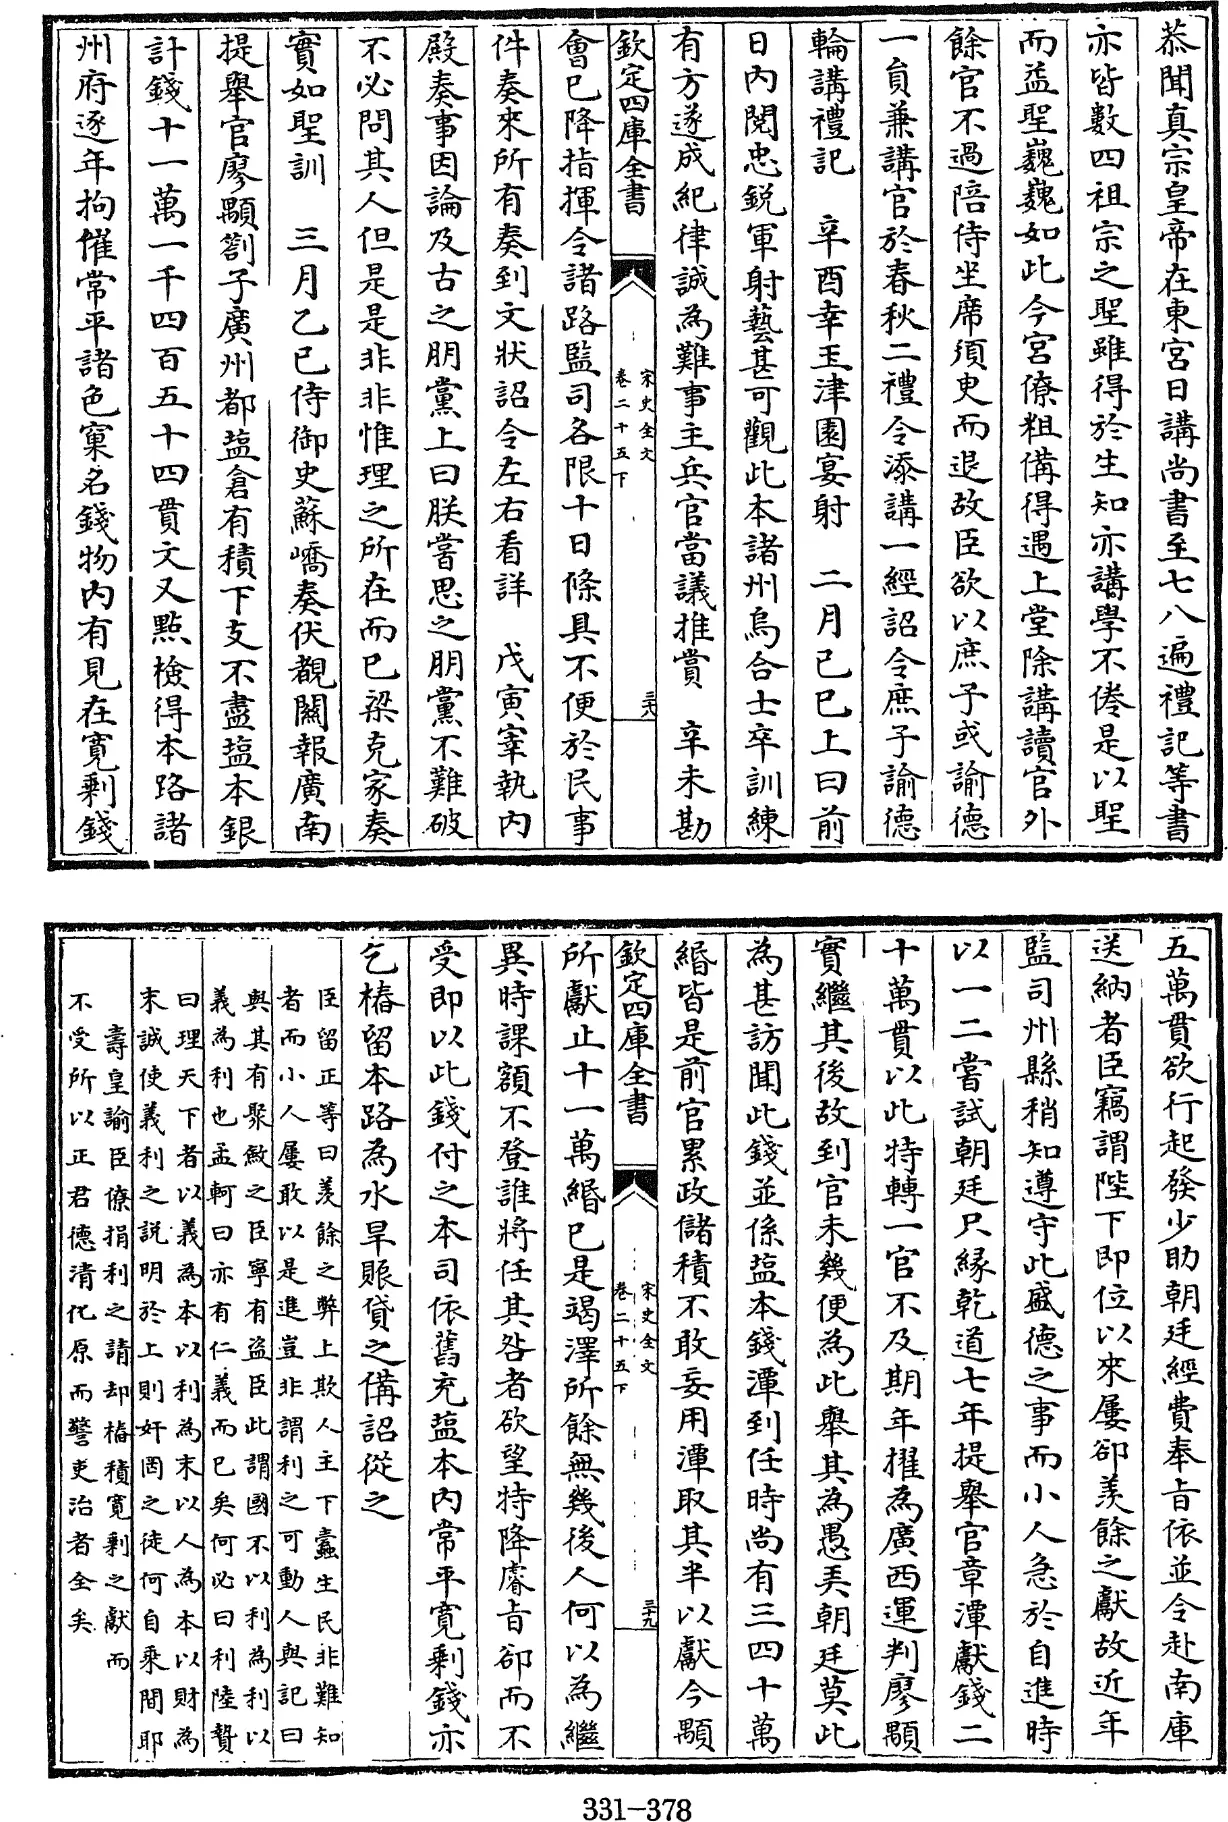 恭聞真宗皇帝在東宮日講尚書至七八遍禮記等書
亦皆數四祖宗之聖雖得於生知亦講學不倦是以聖
而益聖巍巍如此今宮僚粗備得遇上堂除講讀官外
餘官不過陪侍坐席須臾而退故臣欲以庶子或諭德
一員兼講官於春秋二禮令添講一經詔令庶子諭德
輪講禮記　辛酉幸玉津園宴射　二月己巳上曰前
日內閱忠銳軍射藝甚可觀此本諸州烏合士卒訓練
有方遂成紀律誠為難事主兵官當議推賞　辛未勘
欽定四庫全書
宋史全文
卷二十五下
三十八
會已降指揮令諸路監司各限十日條具不便於民事
件奏來所有奏到文狀詔令左右看詳　戊寅宰執內
殿奏事因論及古之朋黨上曰朕嘗思之朋黨不難破
不必問其人但是是非非惟理之所在而已梁克家奏
實如聖訓　三月乙巳侍御史蘇嶠奏伏覩關報廣南
提舉官廖顒劄子廣州都塩倉有積下支不盡塩本銀
計錢十一萬一千四百五十四貫文又點檢得本路諸
州府逐年拘催常平諸色窠名錢物內有見在寛剩錢
五萬貫欲行起發少助朝廷經費奉旨依並令赴南庫
送納者臣竊謂陛下即位以來屢卻羨餘之獻故近年
監司州縣稍知遵守此盛德之事而小人急於自進時
以一二嘗試朝廷只緣乾道七年提舉官章潭獻錢二
十萬貫以此特轉一官不及期年擢為廣西運判廖顒
實繼其後故到官未幾便為此舉其為愚弄朝廷莫此
為甚訪聞此錢並係塩本錢潭到任時尚有三四十萬
緡皆是前官累政儲積不敢妄用潭取其半以獻今顒
欽定四庫全書
宋史全文
卷二十五下
三十九
所獻止十一萬緡已是竭澤所餘無幾後人何以為繼
異時課額不登誰將任其咎者欲望特降睿旨卻而不
受即以此錢付之本司依舊充塩本內常平寛剩錢亦
乞樁留本路為水旱賑貸之備詔從之
臣留正等曰羨餘之弊上欺人主下蠧生民非難知
者而小人屢敢以是進豈非謂利之可動人與記曰
與其有聚斂之臣寧有盗臣此謂國不以利為利以
義為利也孟軻曰亦有仁義而已矣何必曰利陸贄
曰理天下者以義為本以利為末以人為本以財為
末誠使義利之說明於上則奸罔之徒何自乘間耶
壽皇諭臣僚捐利之請却樁積寛剩之獻而
不受所以正君德清化原而警吏治者全矣
331-378